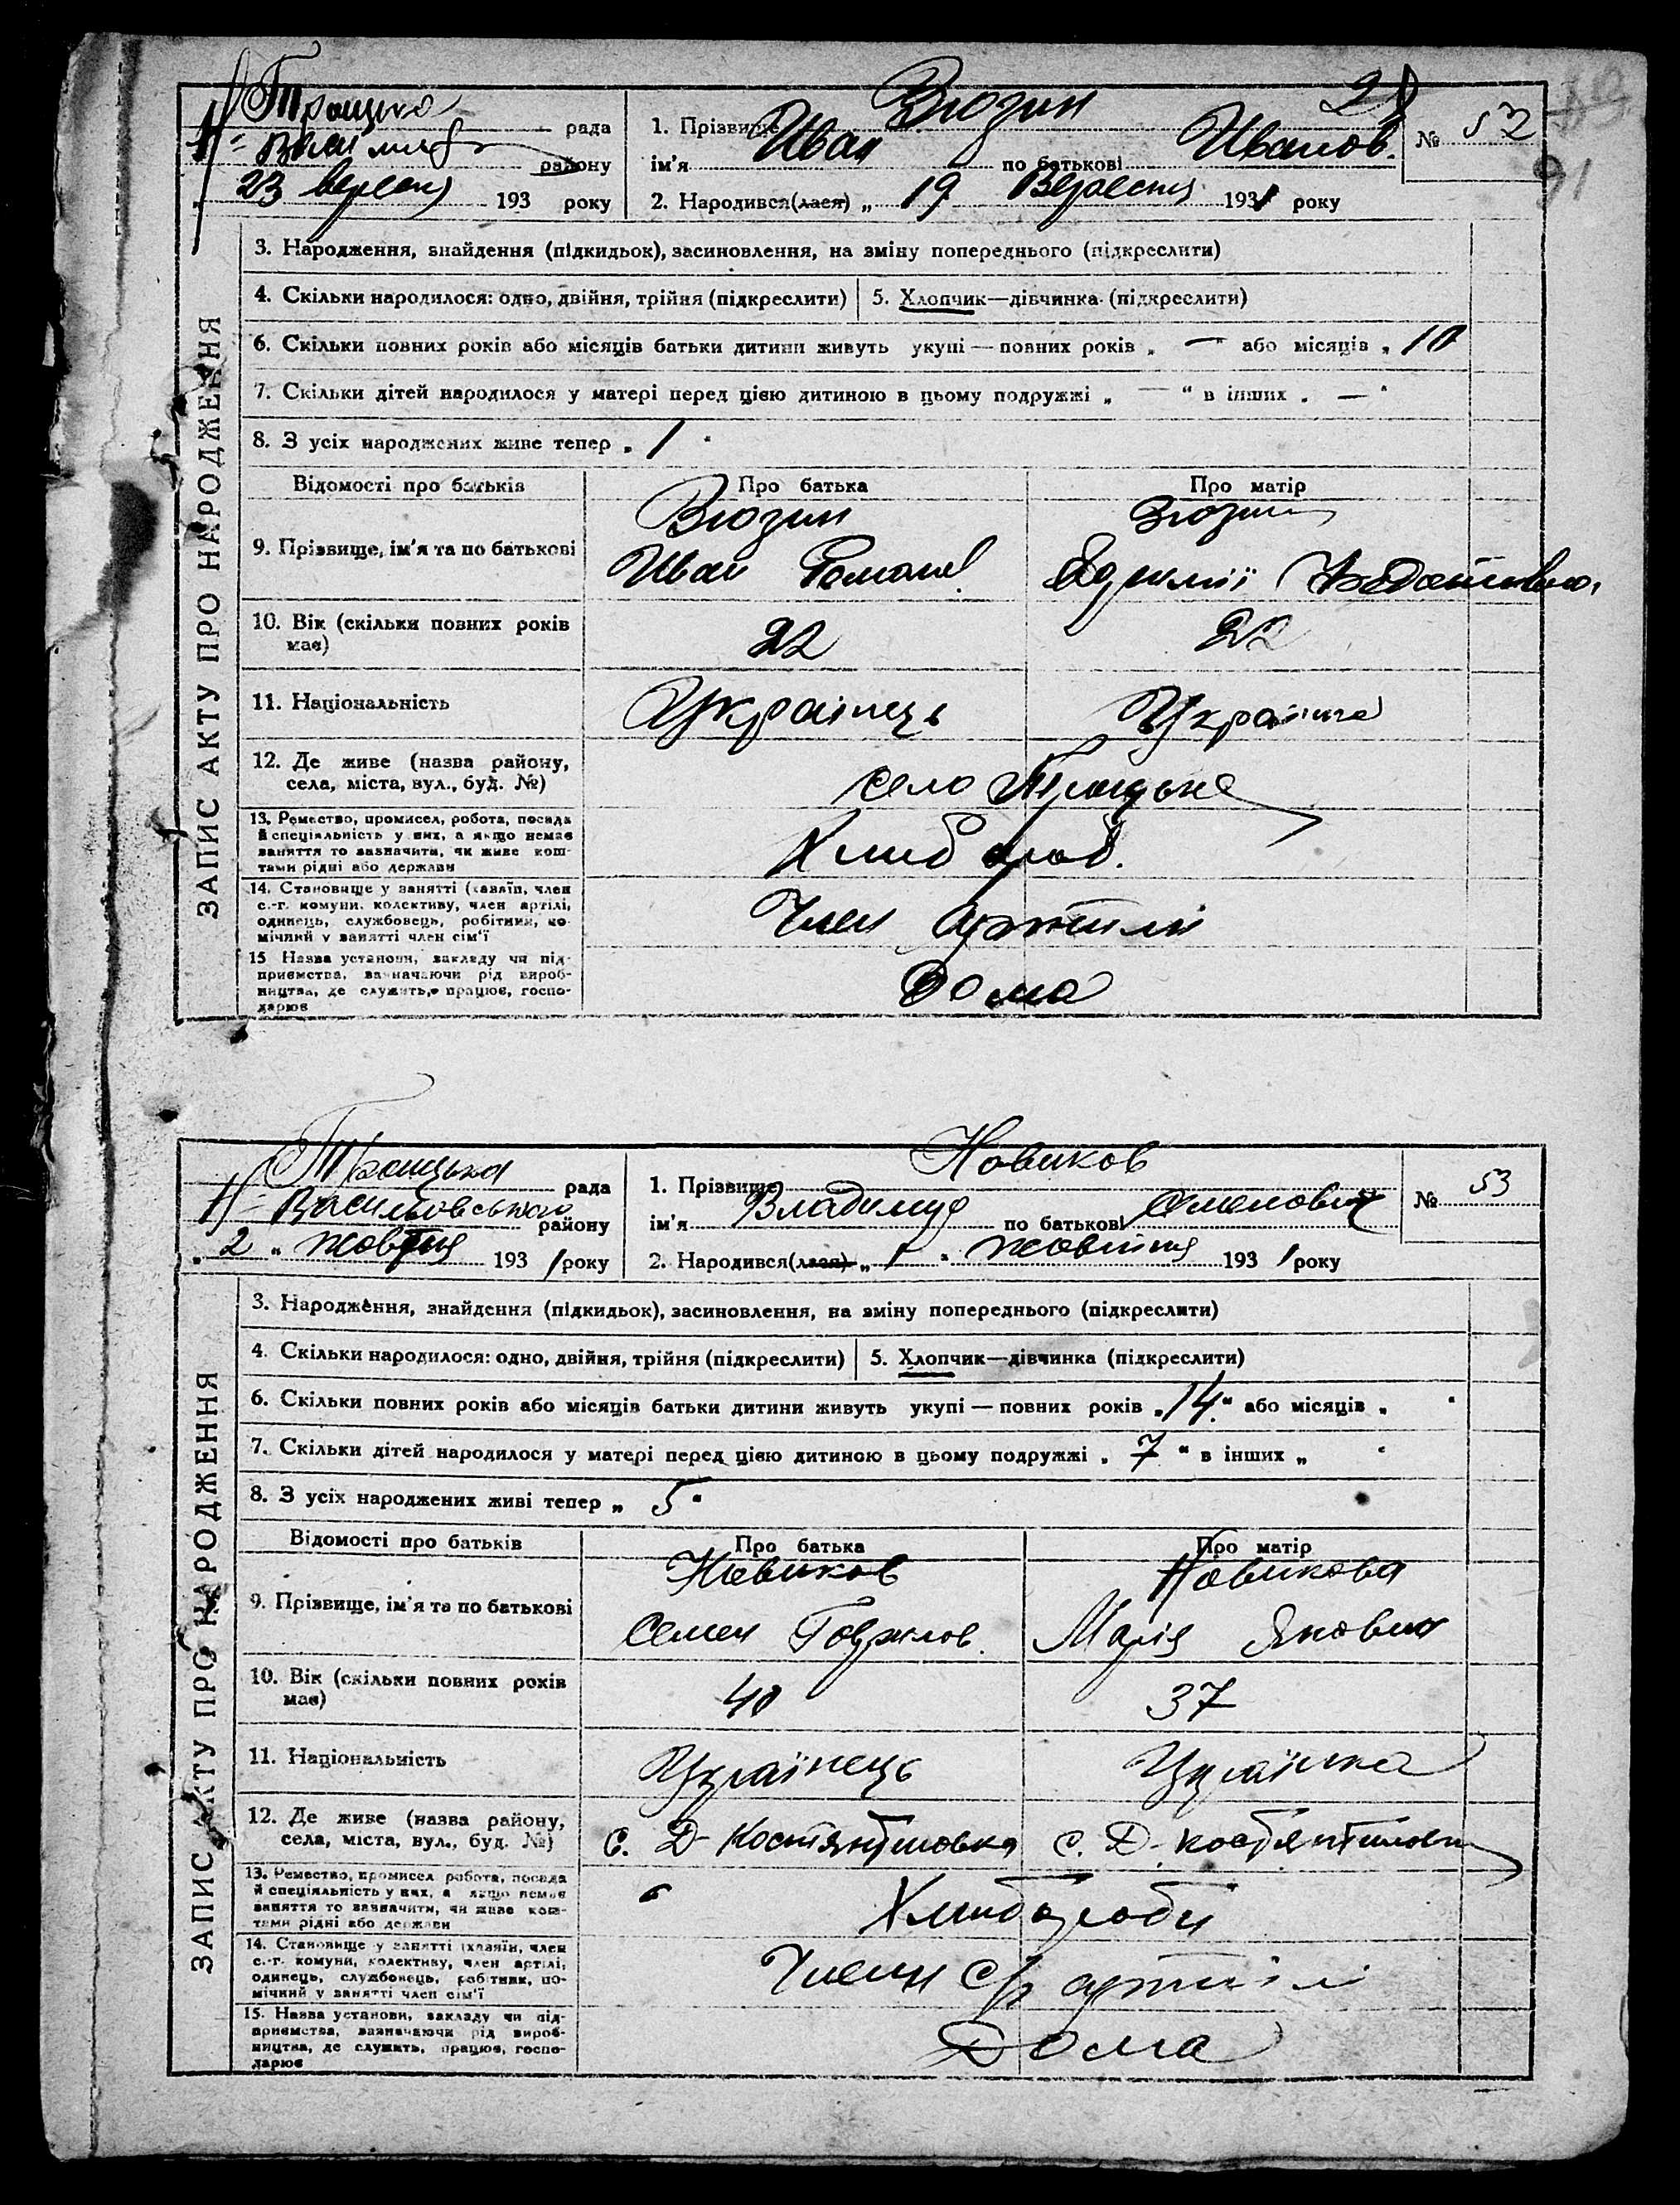 28
Троицка рада
Н-Васил району
23 вересня 193 року
1. Прізвище Вюзин
ім'я Иван по батькові Иванов.
2. Народився(лася) „ 19 Вересня 1931 року
№ 52
91
ЗАПИС АКТУ ПРО НАРОДЖЕННЯ
3. Народження, знайдення (підкидьок), засиновлення, на зміну попереднього (підкреслити)
4. Скільки народилося: одно, двійня, трійня (підкреслити) 5. Хлопчик—дівчинка (підкреслити)
6. Скільки повних років або місяців батьки дитини живуть укупі — повних років „ — " або місяців „ 10
7. Скільки дітей народилося у матері перед цією дитиною в цьому подружжі „ — " в інших „ — "
8. З усіх народжених живе тепер „ 1 "
Відомості про батьків Про батька Про матір
9. Прізвище, ім'я та по батькові
Вюзин Вюзин
Иван Роман
10. Вік (скільки повних років має) 22 22
11. Національність Українець Українка
12. Де живе (назва району, села, міста, вул., буд. №) село Троицьке
13. Ремество, промисел, робота, посада
й спеціяльність у них, а якщо немає
заняття то зазначити, чи живе кош-
тами рідні або держави
Хлибороб.
14. Становище у занятті (хазяїн, член
с.-г. комуни, колективу, член артілі,
одинець, службовець, робітник, по-
мічний у занятті член сім'ї
Член артили
15 Назва установи, закладу чи під-
приємства, зазначаючи рід вироб-
ництва, де служить, працює, госпо-
дарює
Дома
Троицька рада
Н-Васильовського району
„ 2 " жовтня 1931 року
1. Прізвище Новиков
ім'я Владимир по батькові Семенович
2. Народився(лася) „ 1 " жовтня 1931 року
№ 53
ЗАПИС АКТУ ПРО НАРОДЖЕННЯ
3. Народження, знайдення (підкидьок), засиновлення, на зміну попереднього (підкреслити)
4. Скільки народилося: одно, двійня, трійня (підкреслити) 5. Хлопчик—дівчинка (підкреслити)
6. Скільки повних років або місяців батьки дитини живуть укупі — повних років „ 14 " або місяців „ "
7. Скільки дітей народилося у матері перед цією дитиною в цьому подружжі „ 7 " в інших „ "
8. З усіх народжених живі тепер „ 5 "
Відомості про батьків Про батька Про матір
9. Прізвище, ім'я та по батькові
Новиков Новикова
Семен Гаврилов. Марія Яковин
10. Вік (скільки повних років має) 40 37
11. Національність Українець Українка
12. Де живе (назва району, села, міста, вул., буд. №)
с. Д-Костянтиновка с. Д. костянтиновка
13. Ремество, промисел робота, посада
й спеціяльність у них, а якщо немає
заняття то зазначити, чи живе кош-
тами рідні або держави
Хлибороби
14. Становище у занятті (хазяїн, член
с.-г. комуни, колективу, член артілі,
одинець, службовець, робітник, по-
мічний у занятті член сім'ї
Члени с/г артилі
15. Назва установи, закладу чи під-
приємства, зазначаючи рід вироб-
ництва, де служить, працює, госпо-
дарює
Дома